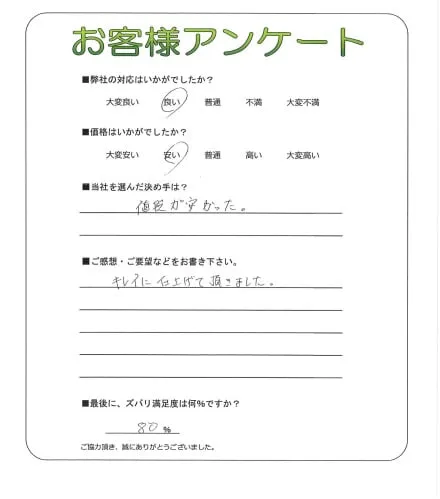 お客様アンケート
■弊社の対応はいかがでしたか?
大変良い 良い 普通 不満 大変不満
■価格はいかがでしたか?
大変安い 安い 普通 高い 大変高い
■当社を選んだ決め手は?
値段が安かった。
■ご感想・ご要望などをお書き下さい。
キレイに仕上げて頂きました。
■最後に、ズバリ満足度は何%ですか?
80 %
ご協力頂き、誠にありがとうございました。